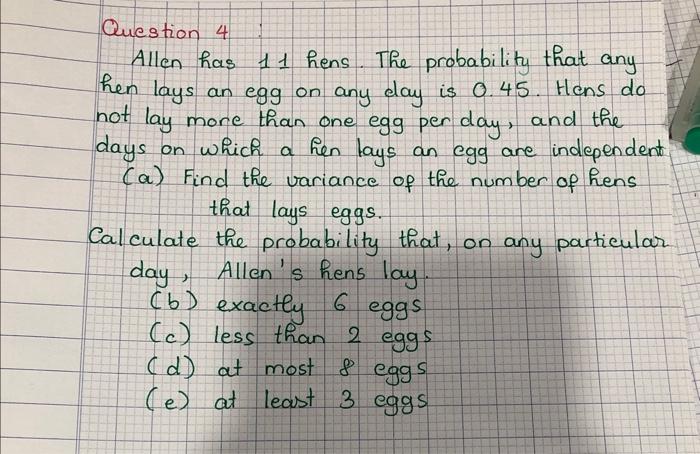 Question 4 :
Allen has 11 hens. The probability that any
hen lays an egg on any day is 0.45. Hens do
not lay more than one egg per day, and the
days on which a hen lays an egg are independent
(a) Find the variance of the number of hens
that lays eggs.
Calculate the probability that, on any particular
day, Allen's hens lay.
(b) exactly 6 eggs
(c) less than 2 eggs
(d) at most 8 eggs
(e) at least 3 eggs